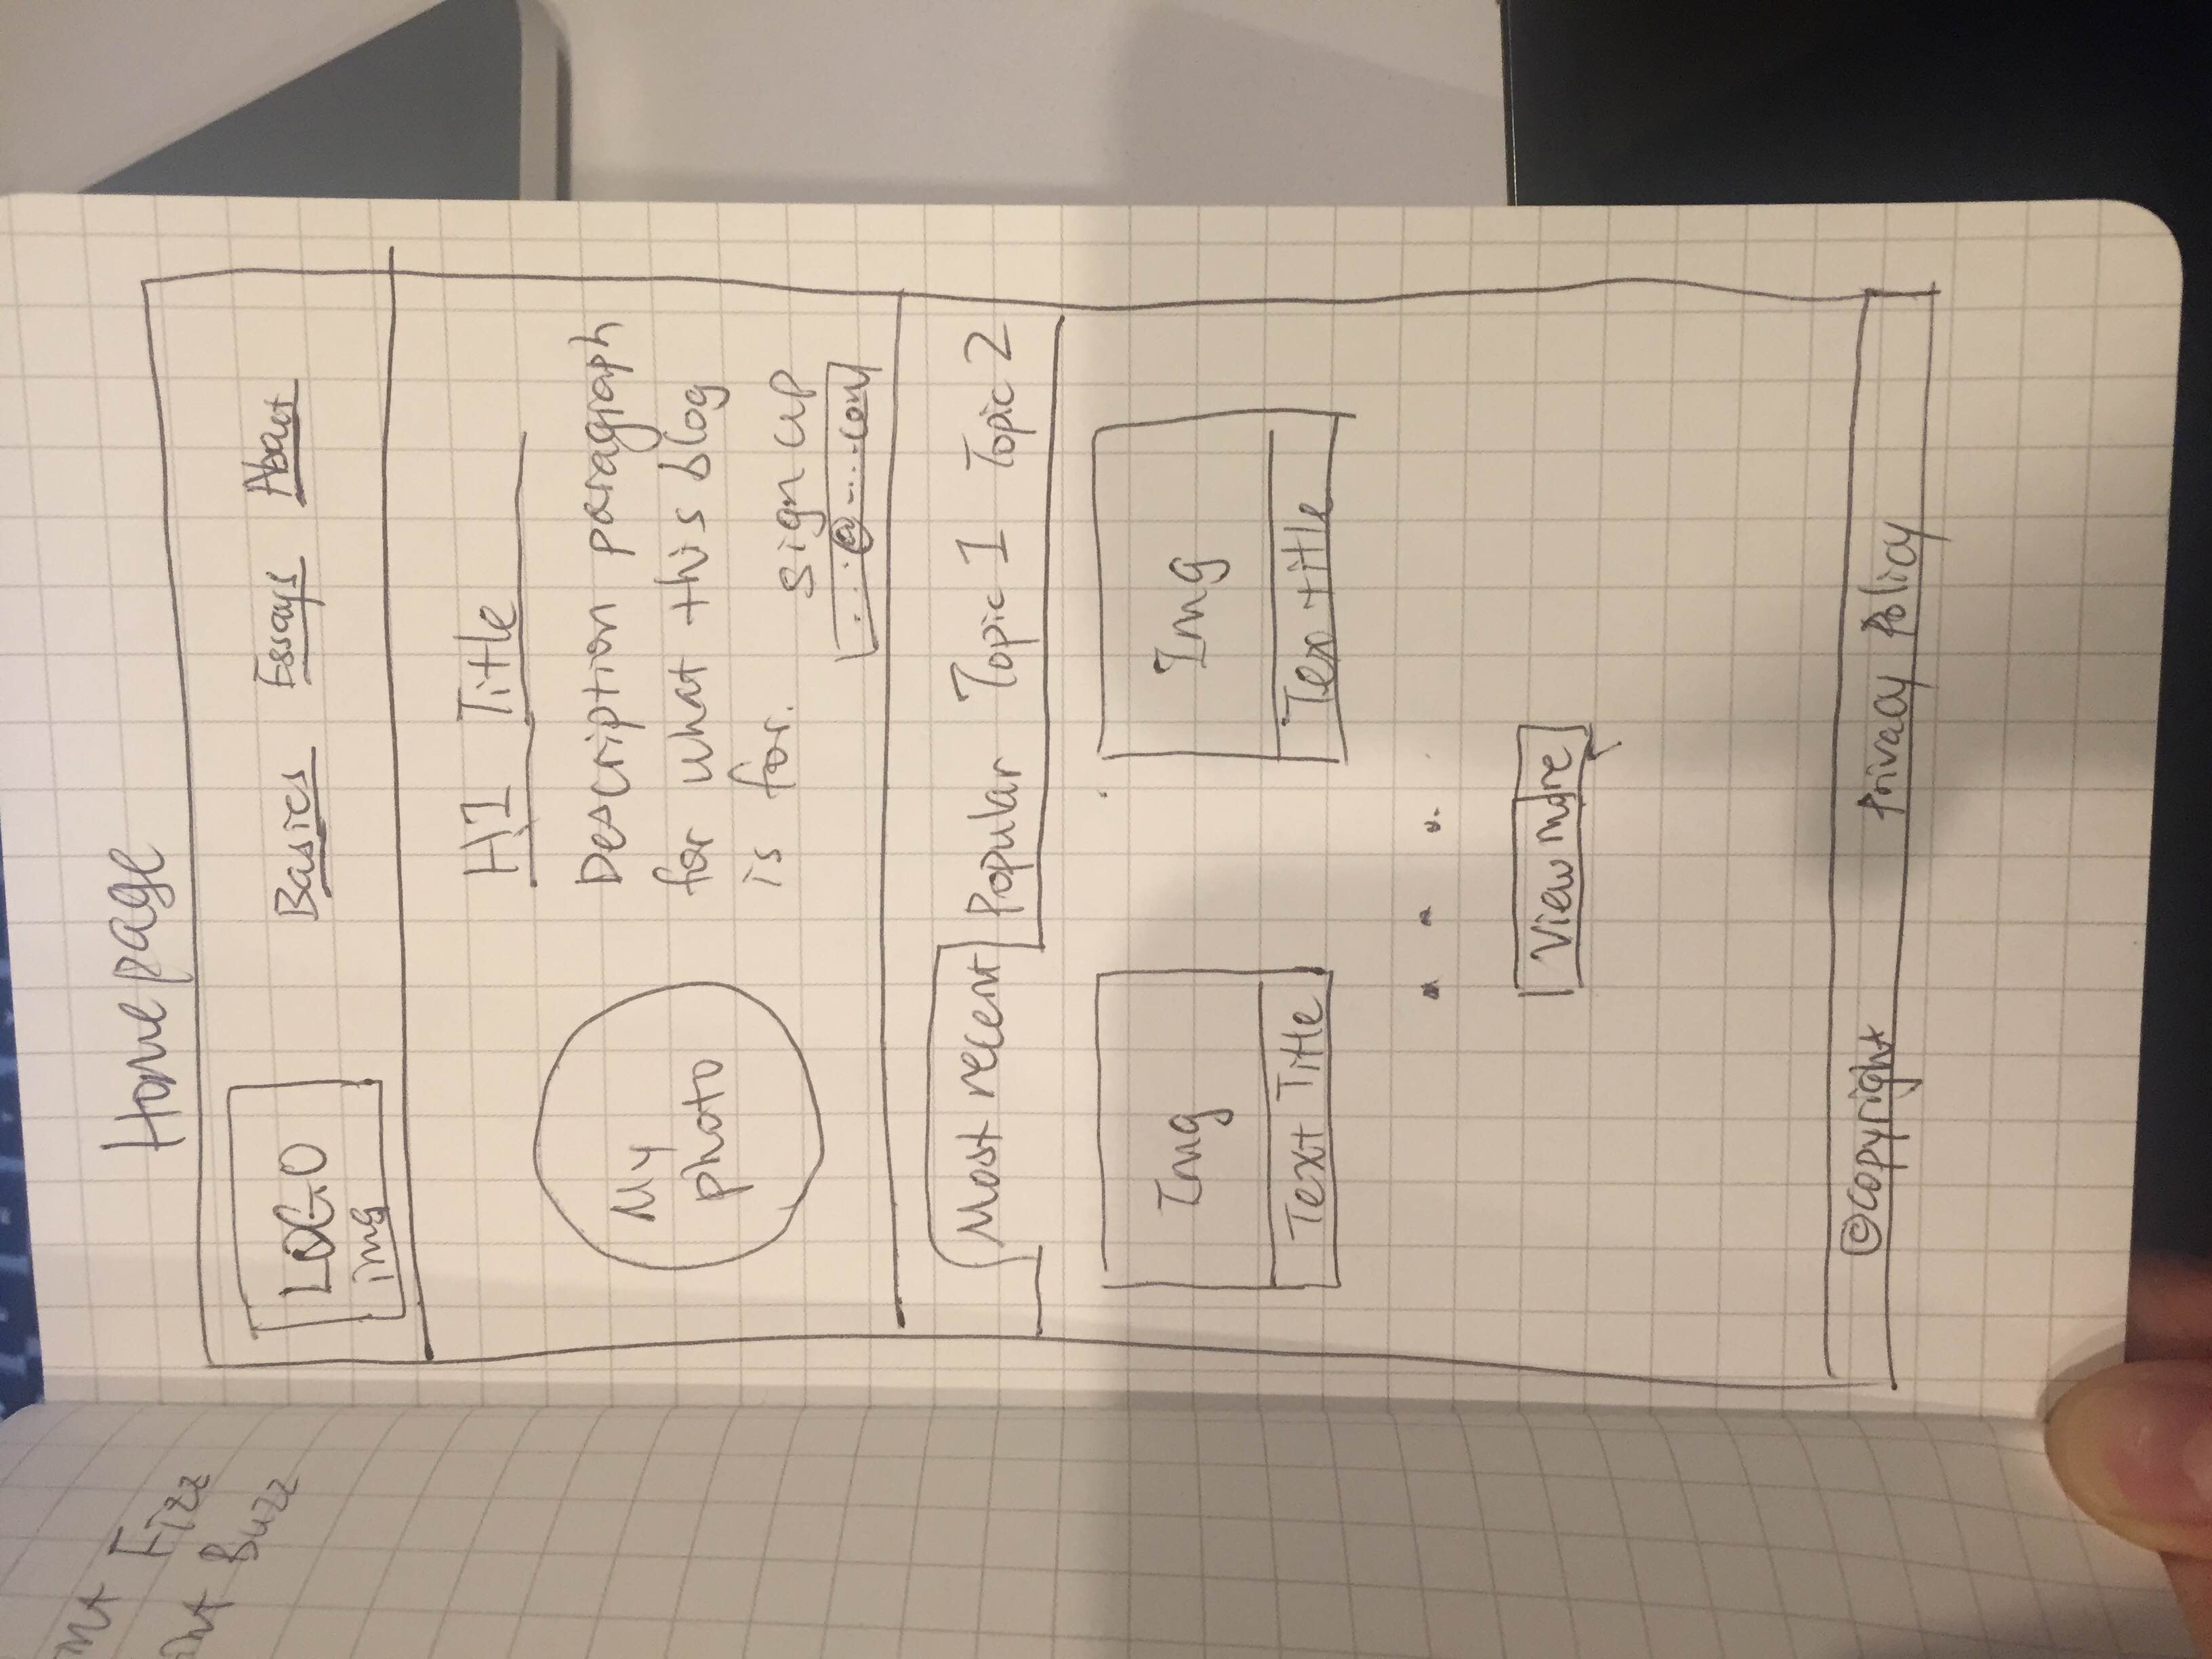 int Fizz
int Buzz
Homepage
LOGO
img
Basics Essays About
H1 Title
My
photo
Description paragraph
for what this blog
is for.
sign up
...@....com
Most recent Popular Topic 1 Topic 2
Img Img
Text Title Tex title
...
View more
©copyright Privacy Policy